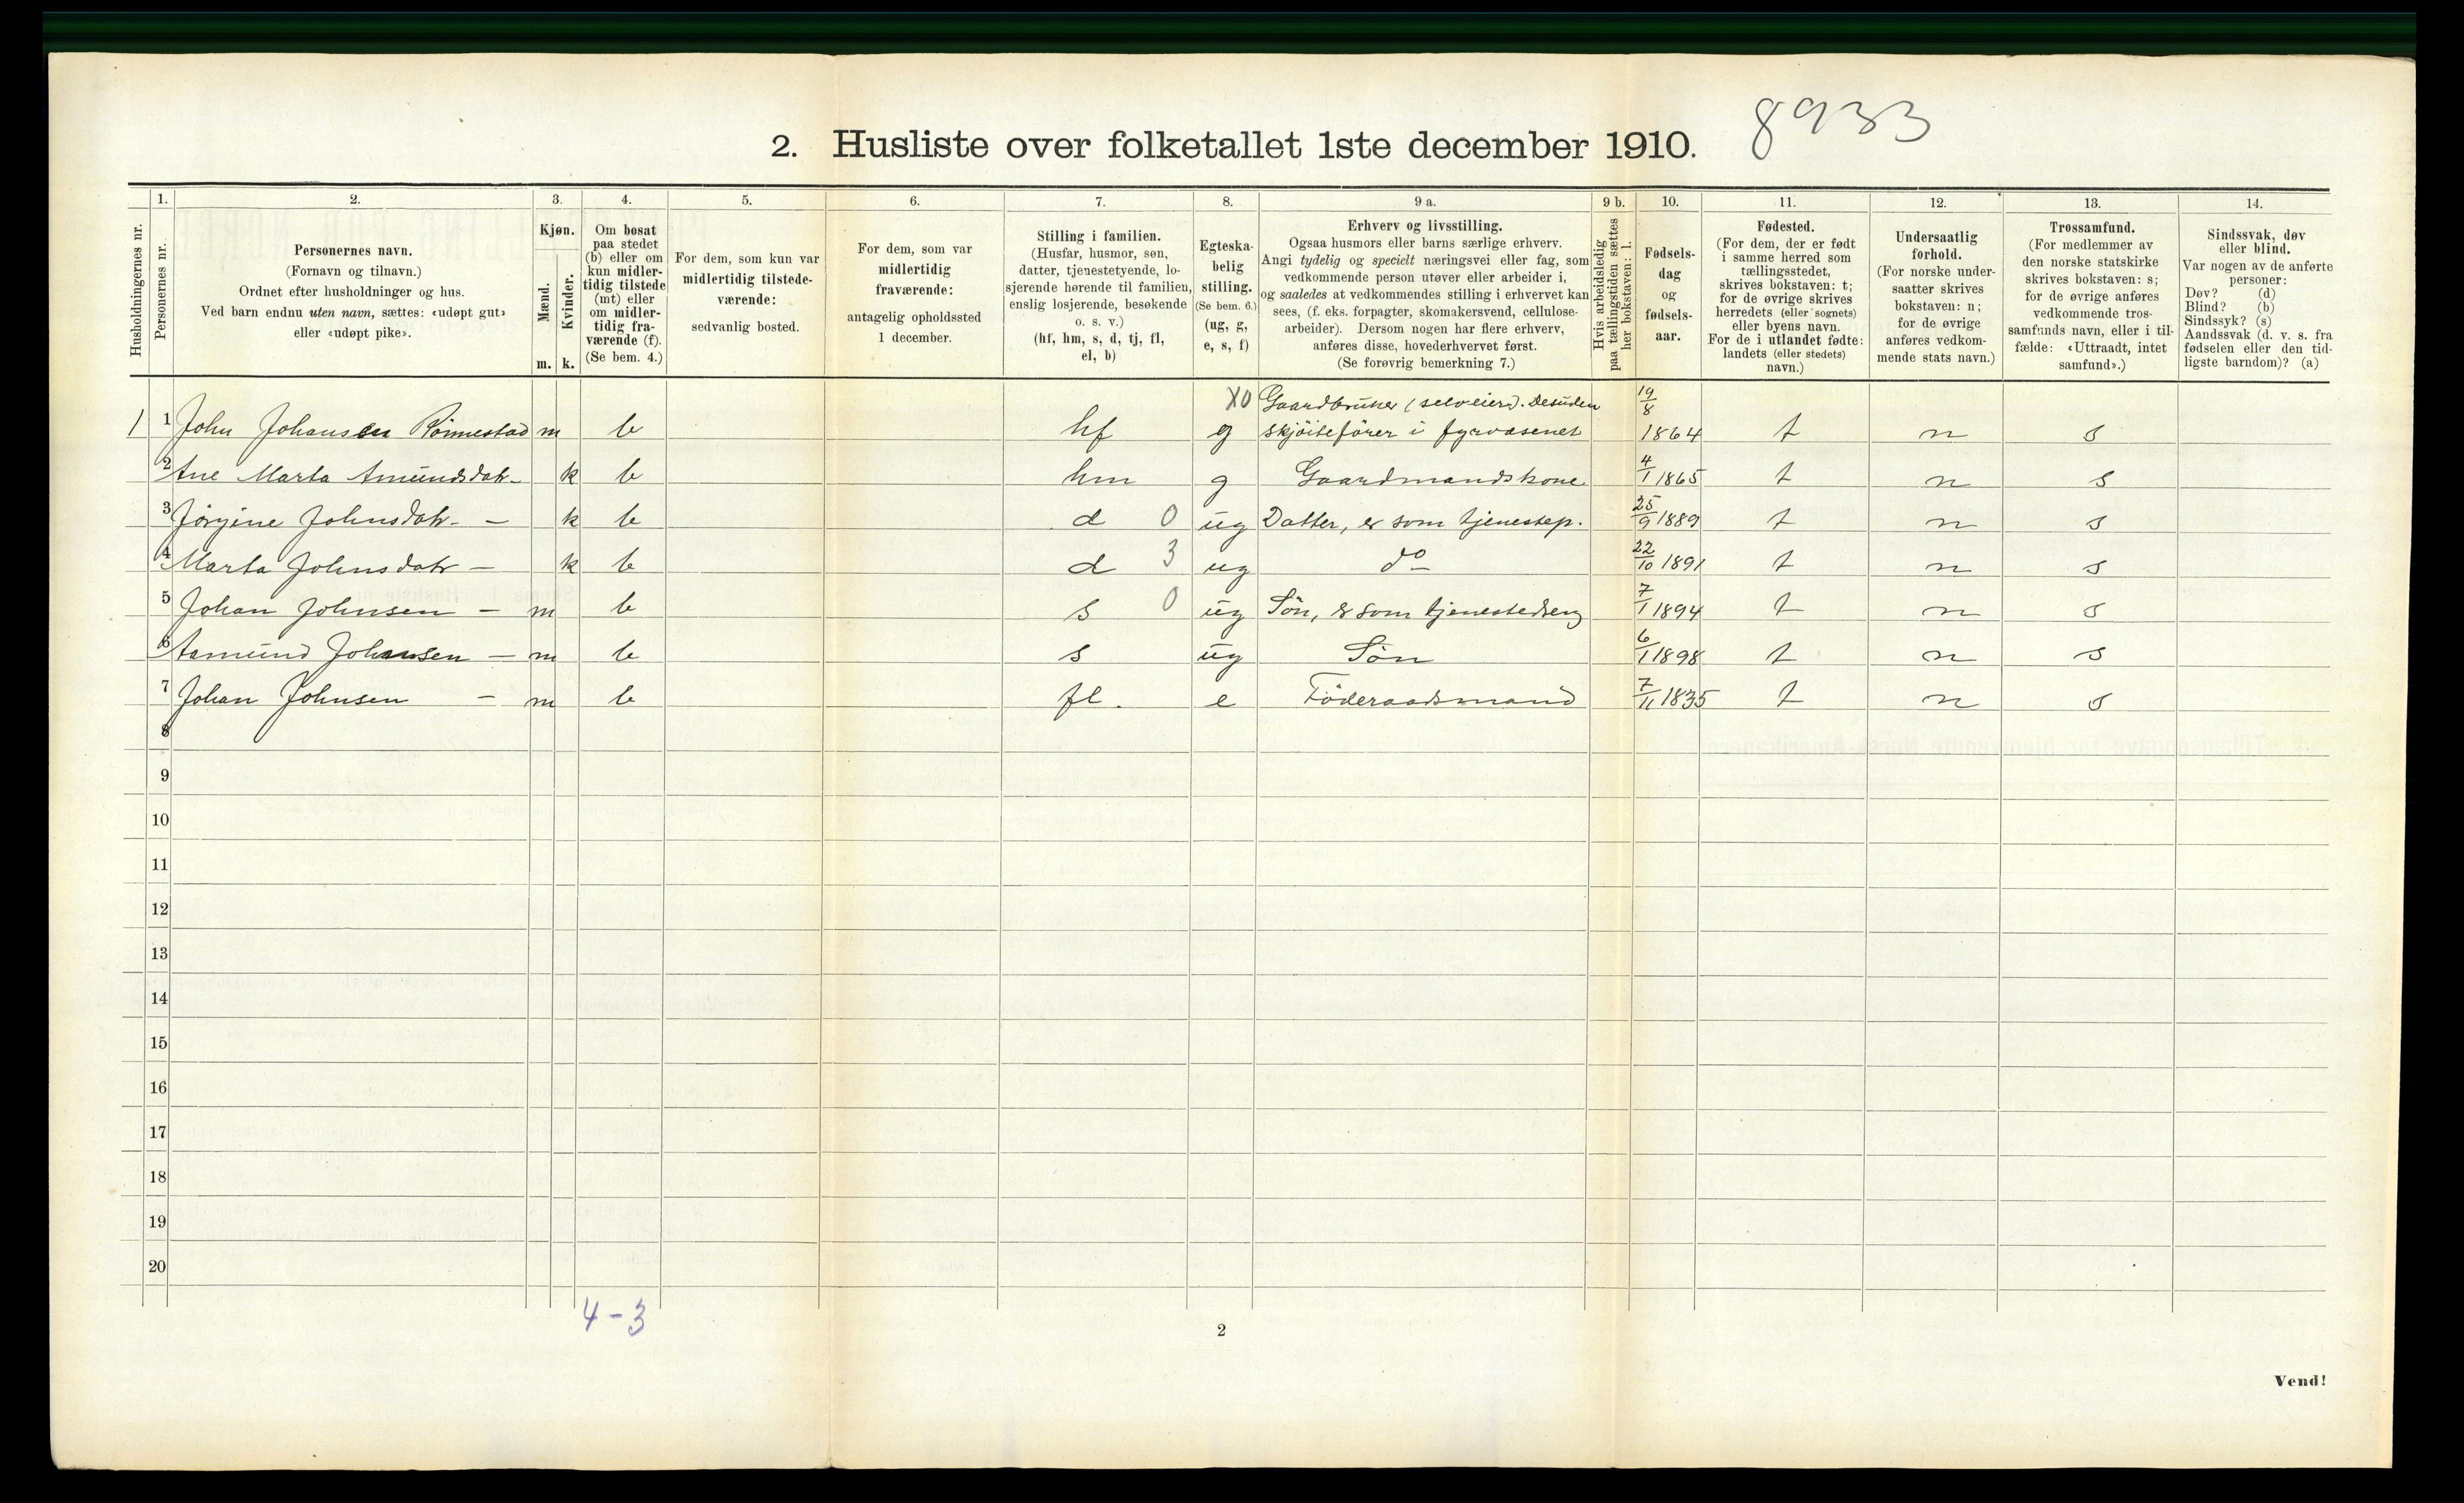 8933
2. Husliste over folketallet 1ste december 1910.
1. 2. 3. 4. 5. 6. 7. 8. 9 a. 9 b. 10. 11. 12. 13. 14.
Husholdningernes nr.
Personernes nr.
Personernes navn.
(Fornavn og tilnavn.)
Ordnet efter husholdninger og hus.
Ved barn endnu uten navn, sættes: «udøpt gut»
eller «udøpt pike».
Kjøn.
Mænd.
Kvinder.
m. k.
Om bosat
paa stedet
(b) eller om
kun midler-
tidig tilstede
(mt) eller
om midler-
tidig fra-
værende (f).
(Se bem. 4.)
For dem, som kun var
midlertidig tilstede-
værende:
sedvanlig bosted.
For dem, som var
midlertidig
fraværende:
antagelig opholdssted
1 december.
Stilling i familien.
(Husfar, husmor, søn,
datter, tjenestetyende, lo-
sjerende hørende til familien,
enslig losjerende, besøkende
o. s. v.)
(hf, hm, s, d, tj, fl,
el, b)
Egteska-
belig
stilling.
(Se bem. 6.)
(ug, g,
e, s, f)
Erhverv og livsstilling.
Ogsaa husmors eller barns særlige erhverv.
Angi tydelig og specielt næringsvei eller fag, som
vedkommende person utøver eller arbeider i,
og saaledes at vedkommendes stilling i erhvervet kan
sees, (f. eks. forpagter, skomakersvend, cellulose-
arbeider). Dersom nogen har flere erhverv,
anføres disse, hovederhvervet først.
(Se forøvrig bemerkning 7.)
Hvis arbeidsledig
paa tællingstiden sættes
her bokstaven: l.
Fødsels-
dag
og
fødsels-
aar.
Fødested.
(For dem, der er født
i samme herred som
tællingsstedet,
skrives bokstaven: t;
for de øvrige skrives
herredets (eller sognets)
eller byens navn.
For de i utlandet fødte:
landets (eller stedets)
navn.)
Undersaatlig
forhold.
(For norske under-
saatter skrives
bokstaven: n;
for de øvrige
anføres vedkom-
mende stats navn.)
Trossamfund.
(For medlemmer av
den norske statskirke
skrives bokstaven: s;
for de øvrige anføres
vedkommende tros-
samfunds navn, eller i til-
fælde: «Uttraadt, intet
samfund».)
Sindssvak, døv
eller blind.
Var nogen av de anførte
personer:
Døv? (d)
Blind? (b)
Sindssyk? (s)
Aandssvak (d. v. s. fra
fødselen eller den tid-
ligste barndom)? (a)
X0 Gaardbruker (selveier). Desuden 19/8
1 1 John Johansen Rönnestad m b hf g skjöitefører i fyrvæsenet 1864 t n s
2 Ane Marta Amundsdatr k b hm g Gaardmandskone 4/1 1865 t n s
3 Jörgine Johnsdatr — k b d 0 ug Datter, er som tjenestep. 25/9 1889 t n s
4 Marta Johnsdatr — k b d 3 ug do 22/10 1891 t n s
5 Johan Johnsen — m b s 0 ug Sön, er som tjenestedreng 7/1 1894 t n s
6 Aamund Johnsen — m b s ug Sön 6/1 1898 t n s
7 Johan Johnsen — m b fl. e Föderaadsmand 7/11 1835 t n s
8
9
10
11
12
13
14
15
16
17
18
19
20
4-3
2
Vend!